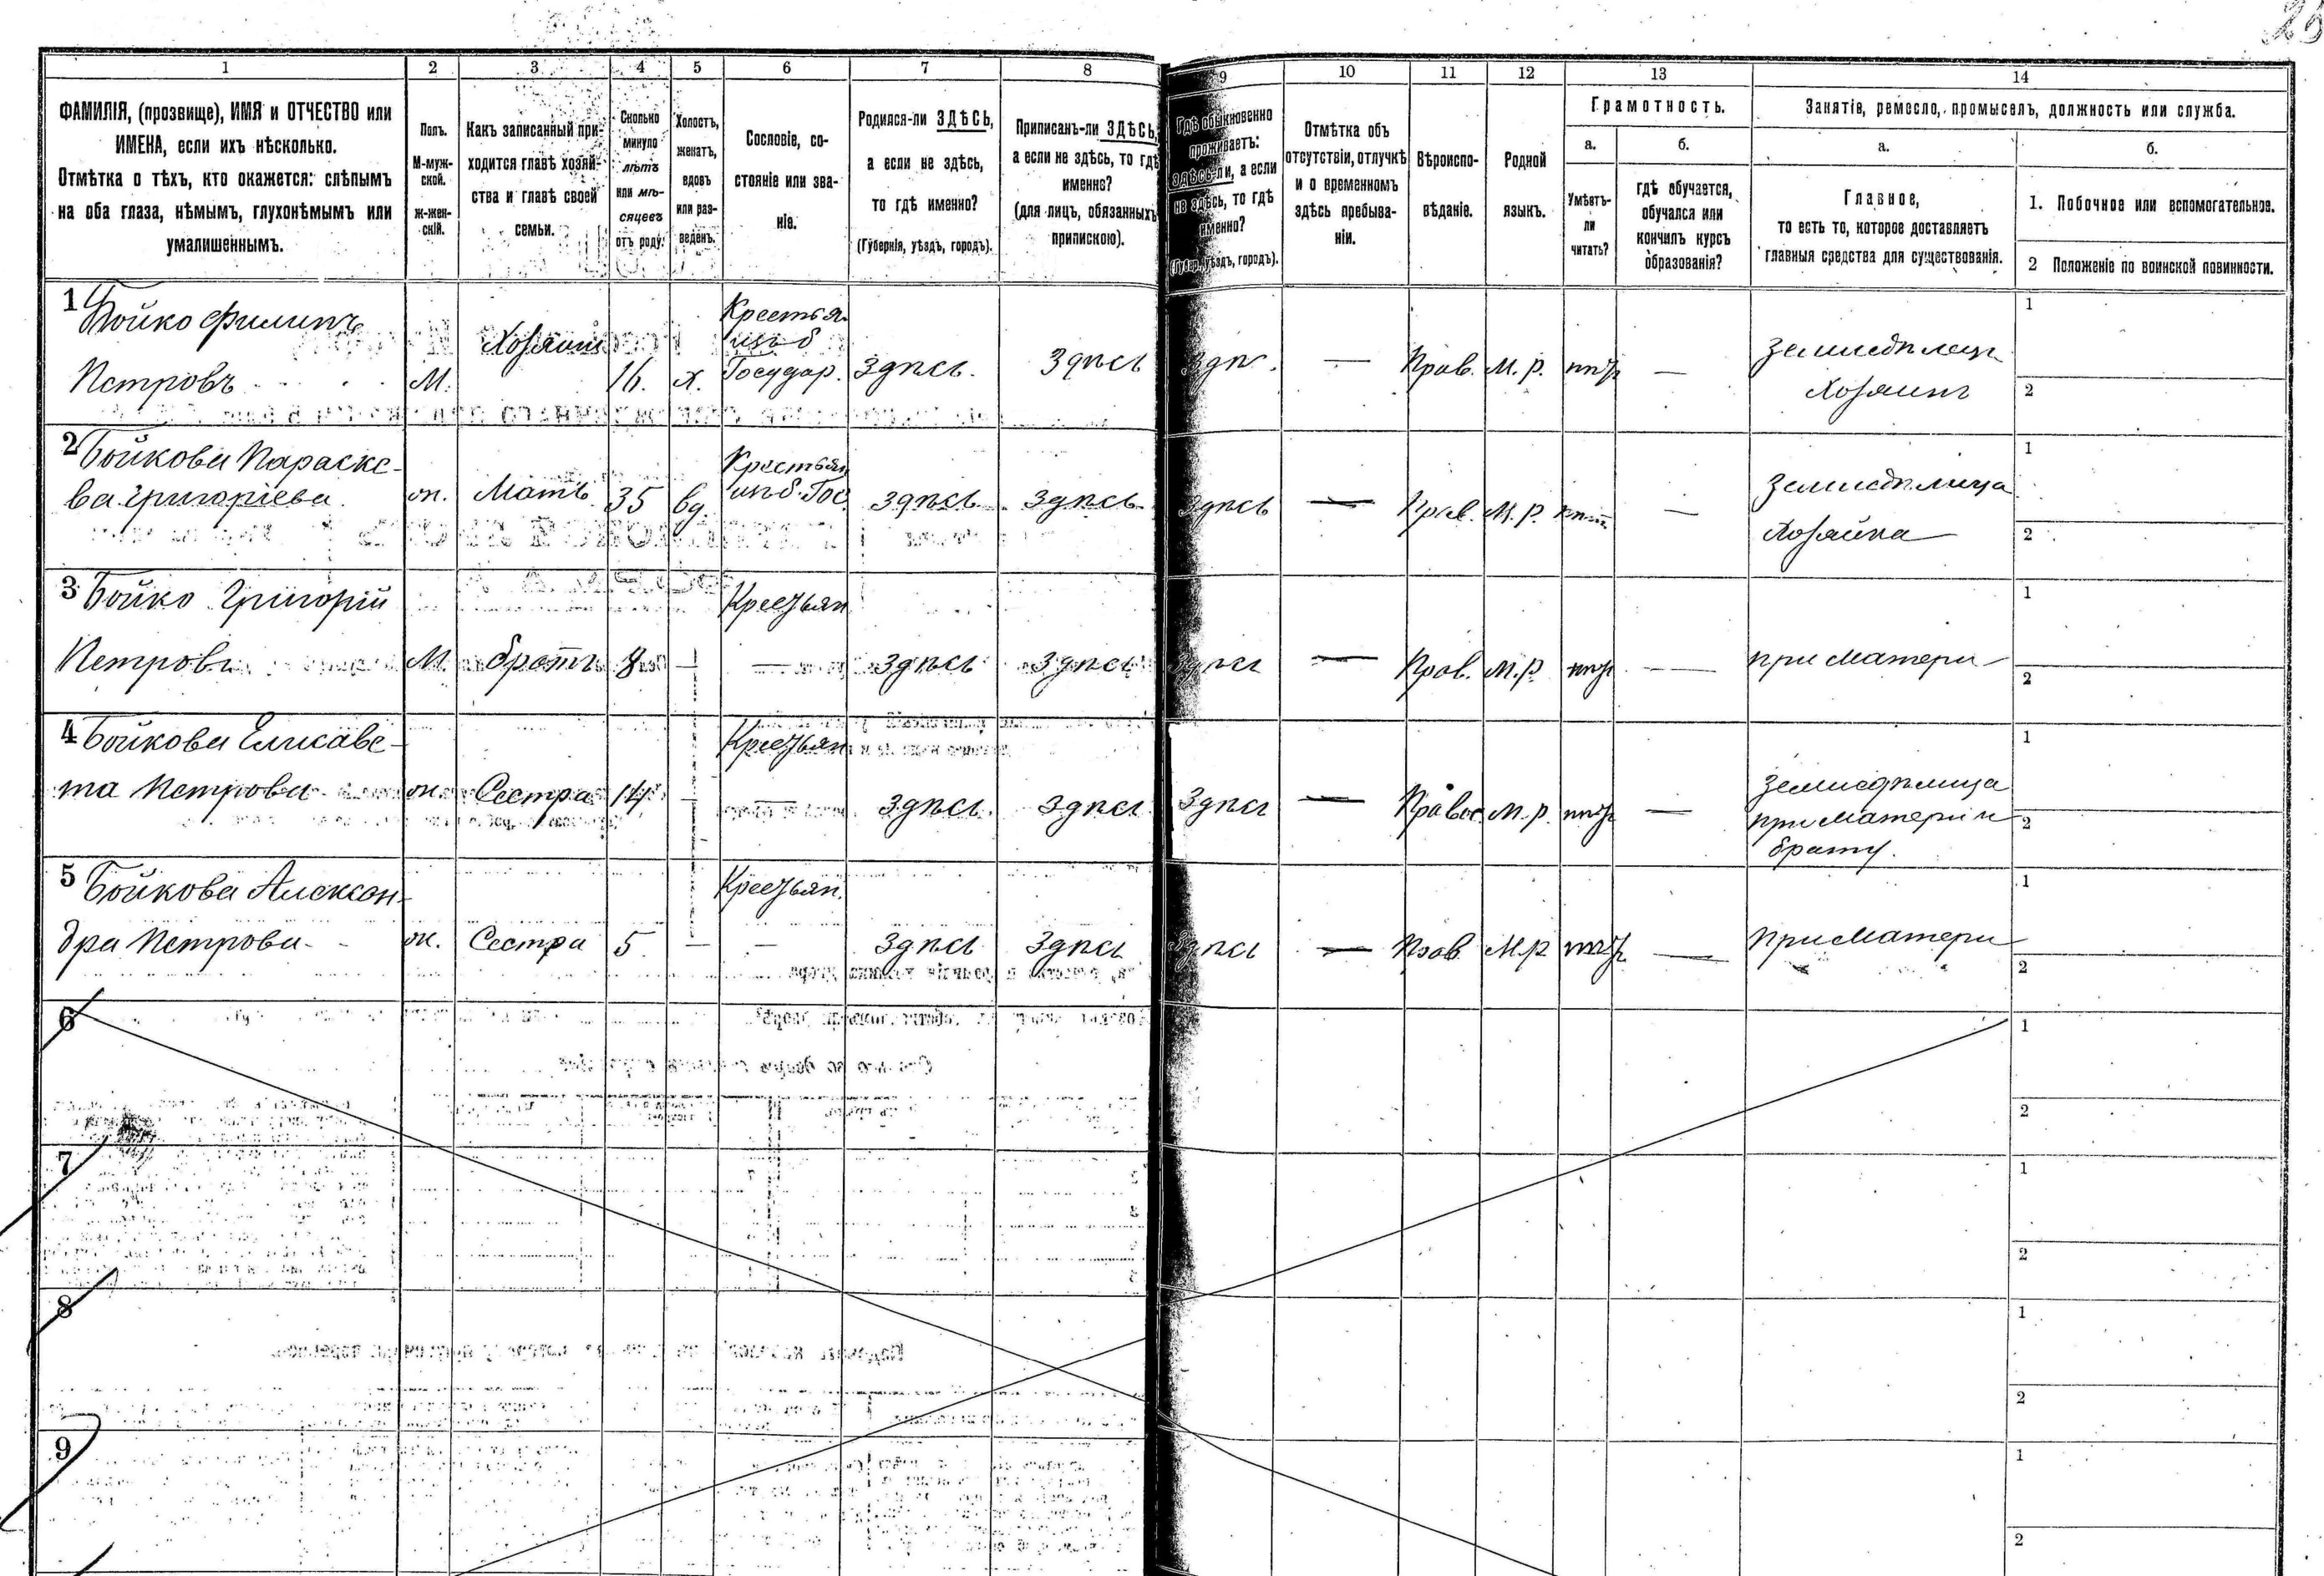 1 2 3 4 5 6 7 8 9 10 11 12 13 14
ФАМИЛІЯ, (прозвище), ИМЯ и ОТЧЕСТВО или
ИМЕНА, если ихъ нѣсколько.
Отмѣтка о тѣхъ, кто окажется: слѣпымъ
на оба глаза, нѣмымъ, глухонѣмымъ или
умалишеннымъ.
Полъ.
М-муж-
ской.
ж-жен-
скій.
Какъ записанный при-
ходится главѣ хозяй-
ства и главѣ своей
семьи.
Сколько
минуло
лѣтъ
или мѣ-
сяцевъ
отъ роду.
Холостъ,
женатъ,
вдовъ
или раз-
веденъ.
Сословіе, со-
стояніе или зва-
ніе.
Родился-ли ЗДѢСЬ,
а если не здѣсь,
то гдѣ именно?
(Губернія, уѣздъ, городъ).
Приписанъ-ли ЗДѢСЬ,
а если не здѣсь, то гдѣ
именно?
(для лицъ, обязанныхъ
припискою).
Гдѣ обыкновенно
проживаетъ:
здѣсь-ли, а если
не здѣсь, то гдѣ
именно?
(Губер., уѣздъ, городъ).
Отмѣтка объ
отсутствіи, отлучкѣ
и о временномъ
здѣсь пребыва-
ніи.
Вѣроиспо-
вѣданіе.
Родной
языкъ.
Грамотность.
а.
Умѣетъ-
ли
читать?
б.
гдѣ обучается,
обучался или
кончилъ курсъ
образованія?
Занятіе, ремесло, промыселъ, должность или служба.
а.
Главное,
то есть то, которое доставляетъ
главныя средства для существованія.
б.
1. Побочное или вспомогательное.
2 Положеніе по воинской повинности.
1 Бойко Филипъ
Петровъ
М.
Хозяинъ
16.
х.
Крестья-
инъ б
Государ.
Здѣсь.
Здѣсь
Здѣс.
—
Прав.
М. р.
нѣтъ
—
Земледѣлецъ
Хозяинъ
1
2
2 Бойкова Параске-
ва Григоріева
ж.
Мать
35
вд.
Крестьян
инъ б. Гос.
Здѣсь
Здѣсь
Здѣсь
—
Прав.
М. р.
нѣтъ
—
Земледѣлица
Хозяйка
1
2
3 Бойко Григорій
Петровъ
М.
братъ
8
—
Крестьян
—
Здѣсь
Здѣсь
Здѣсь
—
Прав.
М. р.
нѣтъ
—
при матери
1
2
4 Бойкова Елисаве-
та Петрова
ж.
Сестра
14
—
Крестьян
—
Здѣсь
Здѣсь
Здѣсь
—
Правос.
М. р.
нѣтъ
—
Земледѣлица
при матери и
брату.
1
2
5 Бойкова Алексан-
дра Петрова
ж.
Сестра
5
—
Крестьян.
—
Здѣсь
Здѣсь
Здѣсь
—
Прав
М. р
нѣтъ
—
При матери
1
2
6
1
2
7
1
2
8
1
2
9
1
2